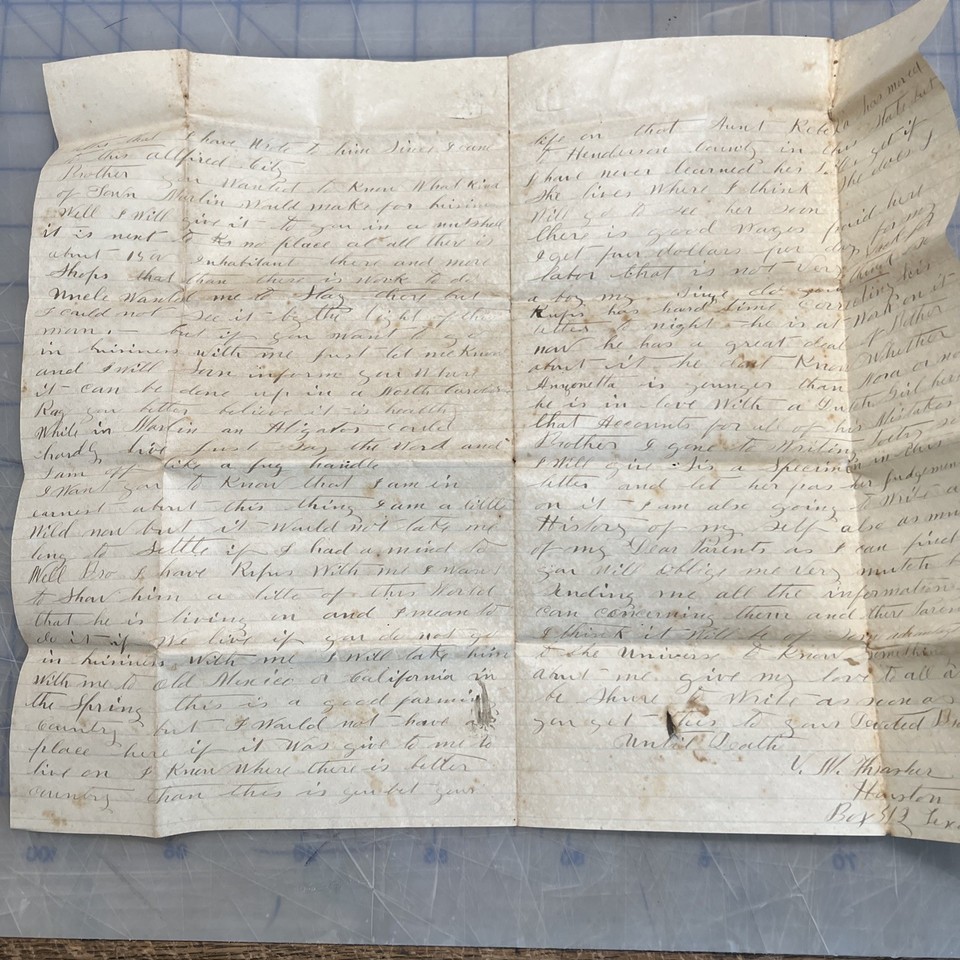 that I have Wrote to him Since I came
to this allfired City
Brother you Wanted to Know What Kind
of Town Marlin Would make for buisin
Well I Will give it to you in a nutshell
it is next to no place at all there is
about 1500 Inhabitant there and more
Shops that than there is Work to do
Uncle Wanted me to Stay there but
I could not See it by the light of the
moon but if you Want to go
in buisiness with me just let me Know
and I Will Soon informe you What
it can be done up in a North Carolina
Rag you better believe it is health
While in Marlin an Aligator could
hardly live just Say the Word and
I am off like a jug handle
I Want you to Know that I am in
earnest about this thing I am a little
Wild now but it Would not take me
long to Settle if I had a mind to
Well Bro I have Rufus With me I Want
to Show him a litle of this World
that he is living on and I mean to
do it if We live if you do not go
in buisiness With me I Will take him
With me to Old Mexico or California in
the Spring this is a good farming
Country but I Would not have a
place here if it Was give to me to
live on I Know Where there is better
country than this is you bet your
life on that Aunt Rebeka has moved
to Henderson County in this State but
I have never learned her
She lives Where I think She does I
Will go to See her Soon
there is good Wages paid here
I get four dollars per day for my
labor that is not very bad for
a boy my Size do you
Rufus has hard time Correcting his
letter to night he is at Work on it
now he has a great deal of Bother
about it he dont Know Whether
Anzonetta is younger than Nora or not
he is in love With a Dutch Girl here
that Accounts for all of his Mistakes
Brother I gone to Writing Poetry so
I Will give Sis a Specimen in
letter and let her pas her Judgement
on it I am also going to Write a
History of my Self also as much
of my Dear Parents as I can find
you Will Oblige me very mutch by
Sending me all the information
can concerning them and there Paren
I think it Will be of
to the Universe to Know Something
about me give my love to all a
be Shure to Write as soon as
you get this to your Devoted Bro
Until Death
Y. W. Thrasher
Houston
Box 512 Texas